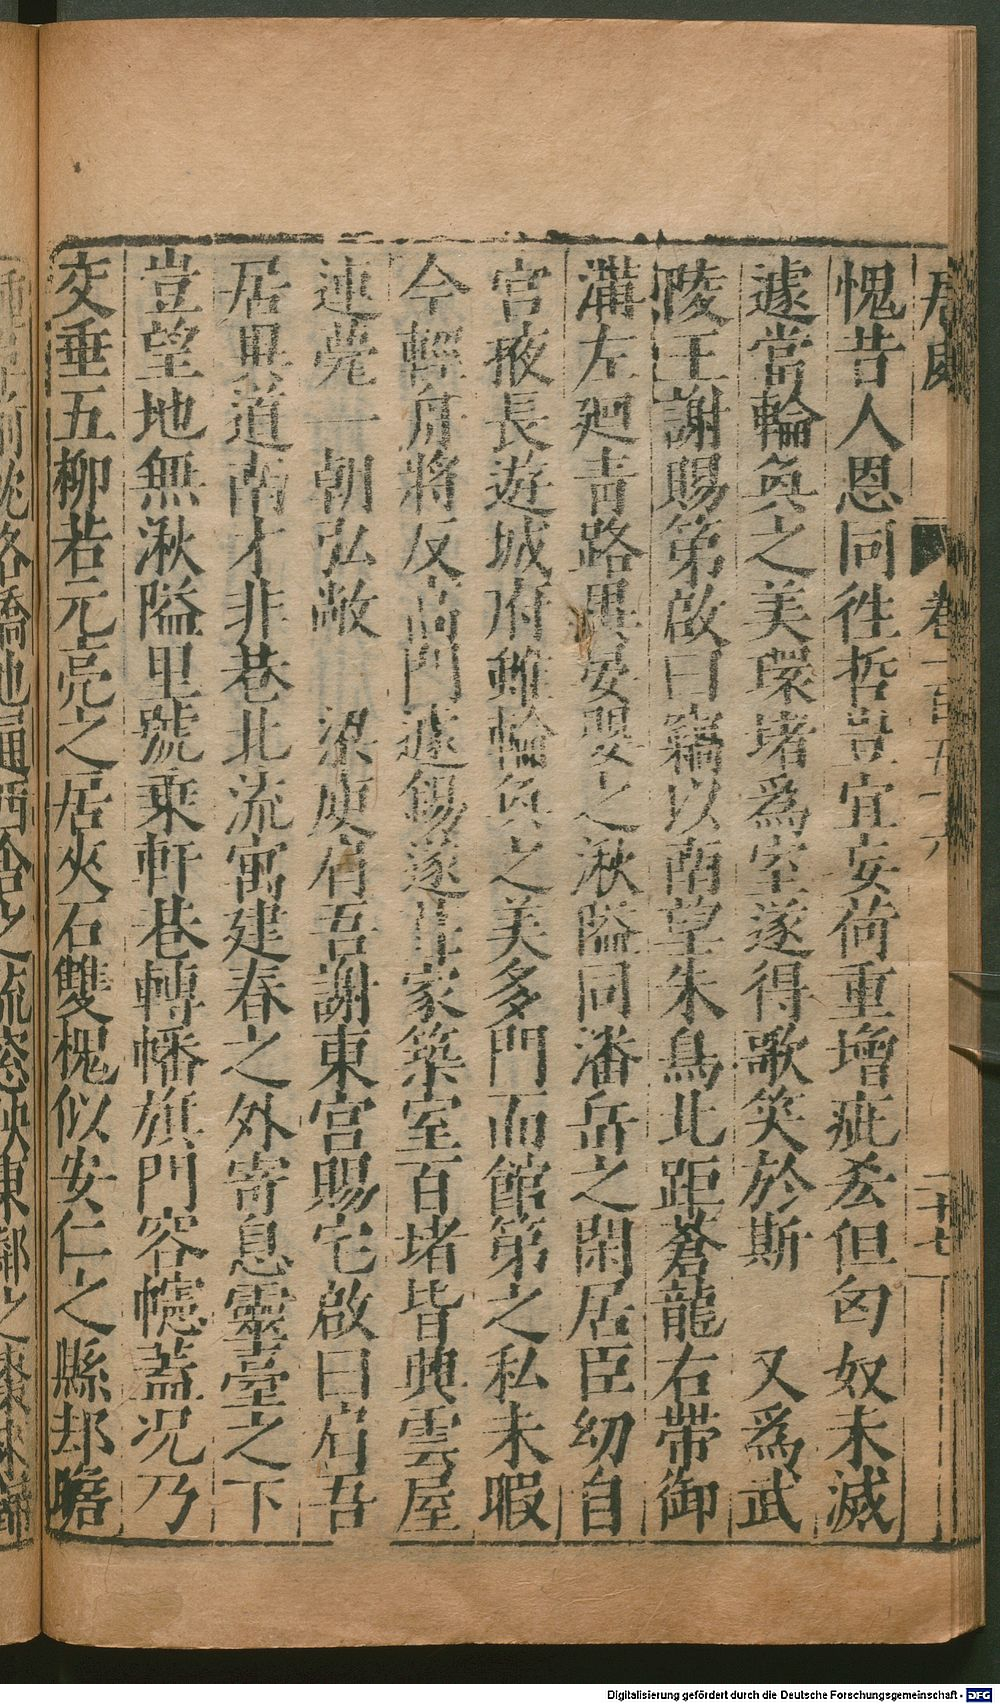 居處
卷一百五十六
二十七
愧昔人恩同徃哲豈宜妄荷重增疵尤但匈奴未滅
遽當輪奐之美環堵爲室遂得歌笑於斯 又爲武
陵王謝賜第啟曰竊以南望朱鳥北距蒼龍右帶御
溝左廻青路異晏嬰之湫隘同潘岳之閑居臣幼自
宮掖長遊城府雖輪奐之美多門而館第之私未暇
今輕舟將反 遽錫遂 家築室百堵皆興雲屋
連甍一朝弘敞 梁庾肩吾謝東宮賜宅啟曰肩吾
居異道南才非巷北流寓建春之外寄息靈臺之下
豈望地無湫隘里號乘軒巷轉幡旗門容幰蓋况乃
交垂五柳若元亮之居夾石雙槐似安仁之縣却瞻
Digitalisierung gefördert durch die Deutsche Forschungsgemeinschaft - DFG